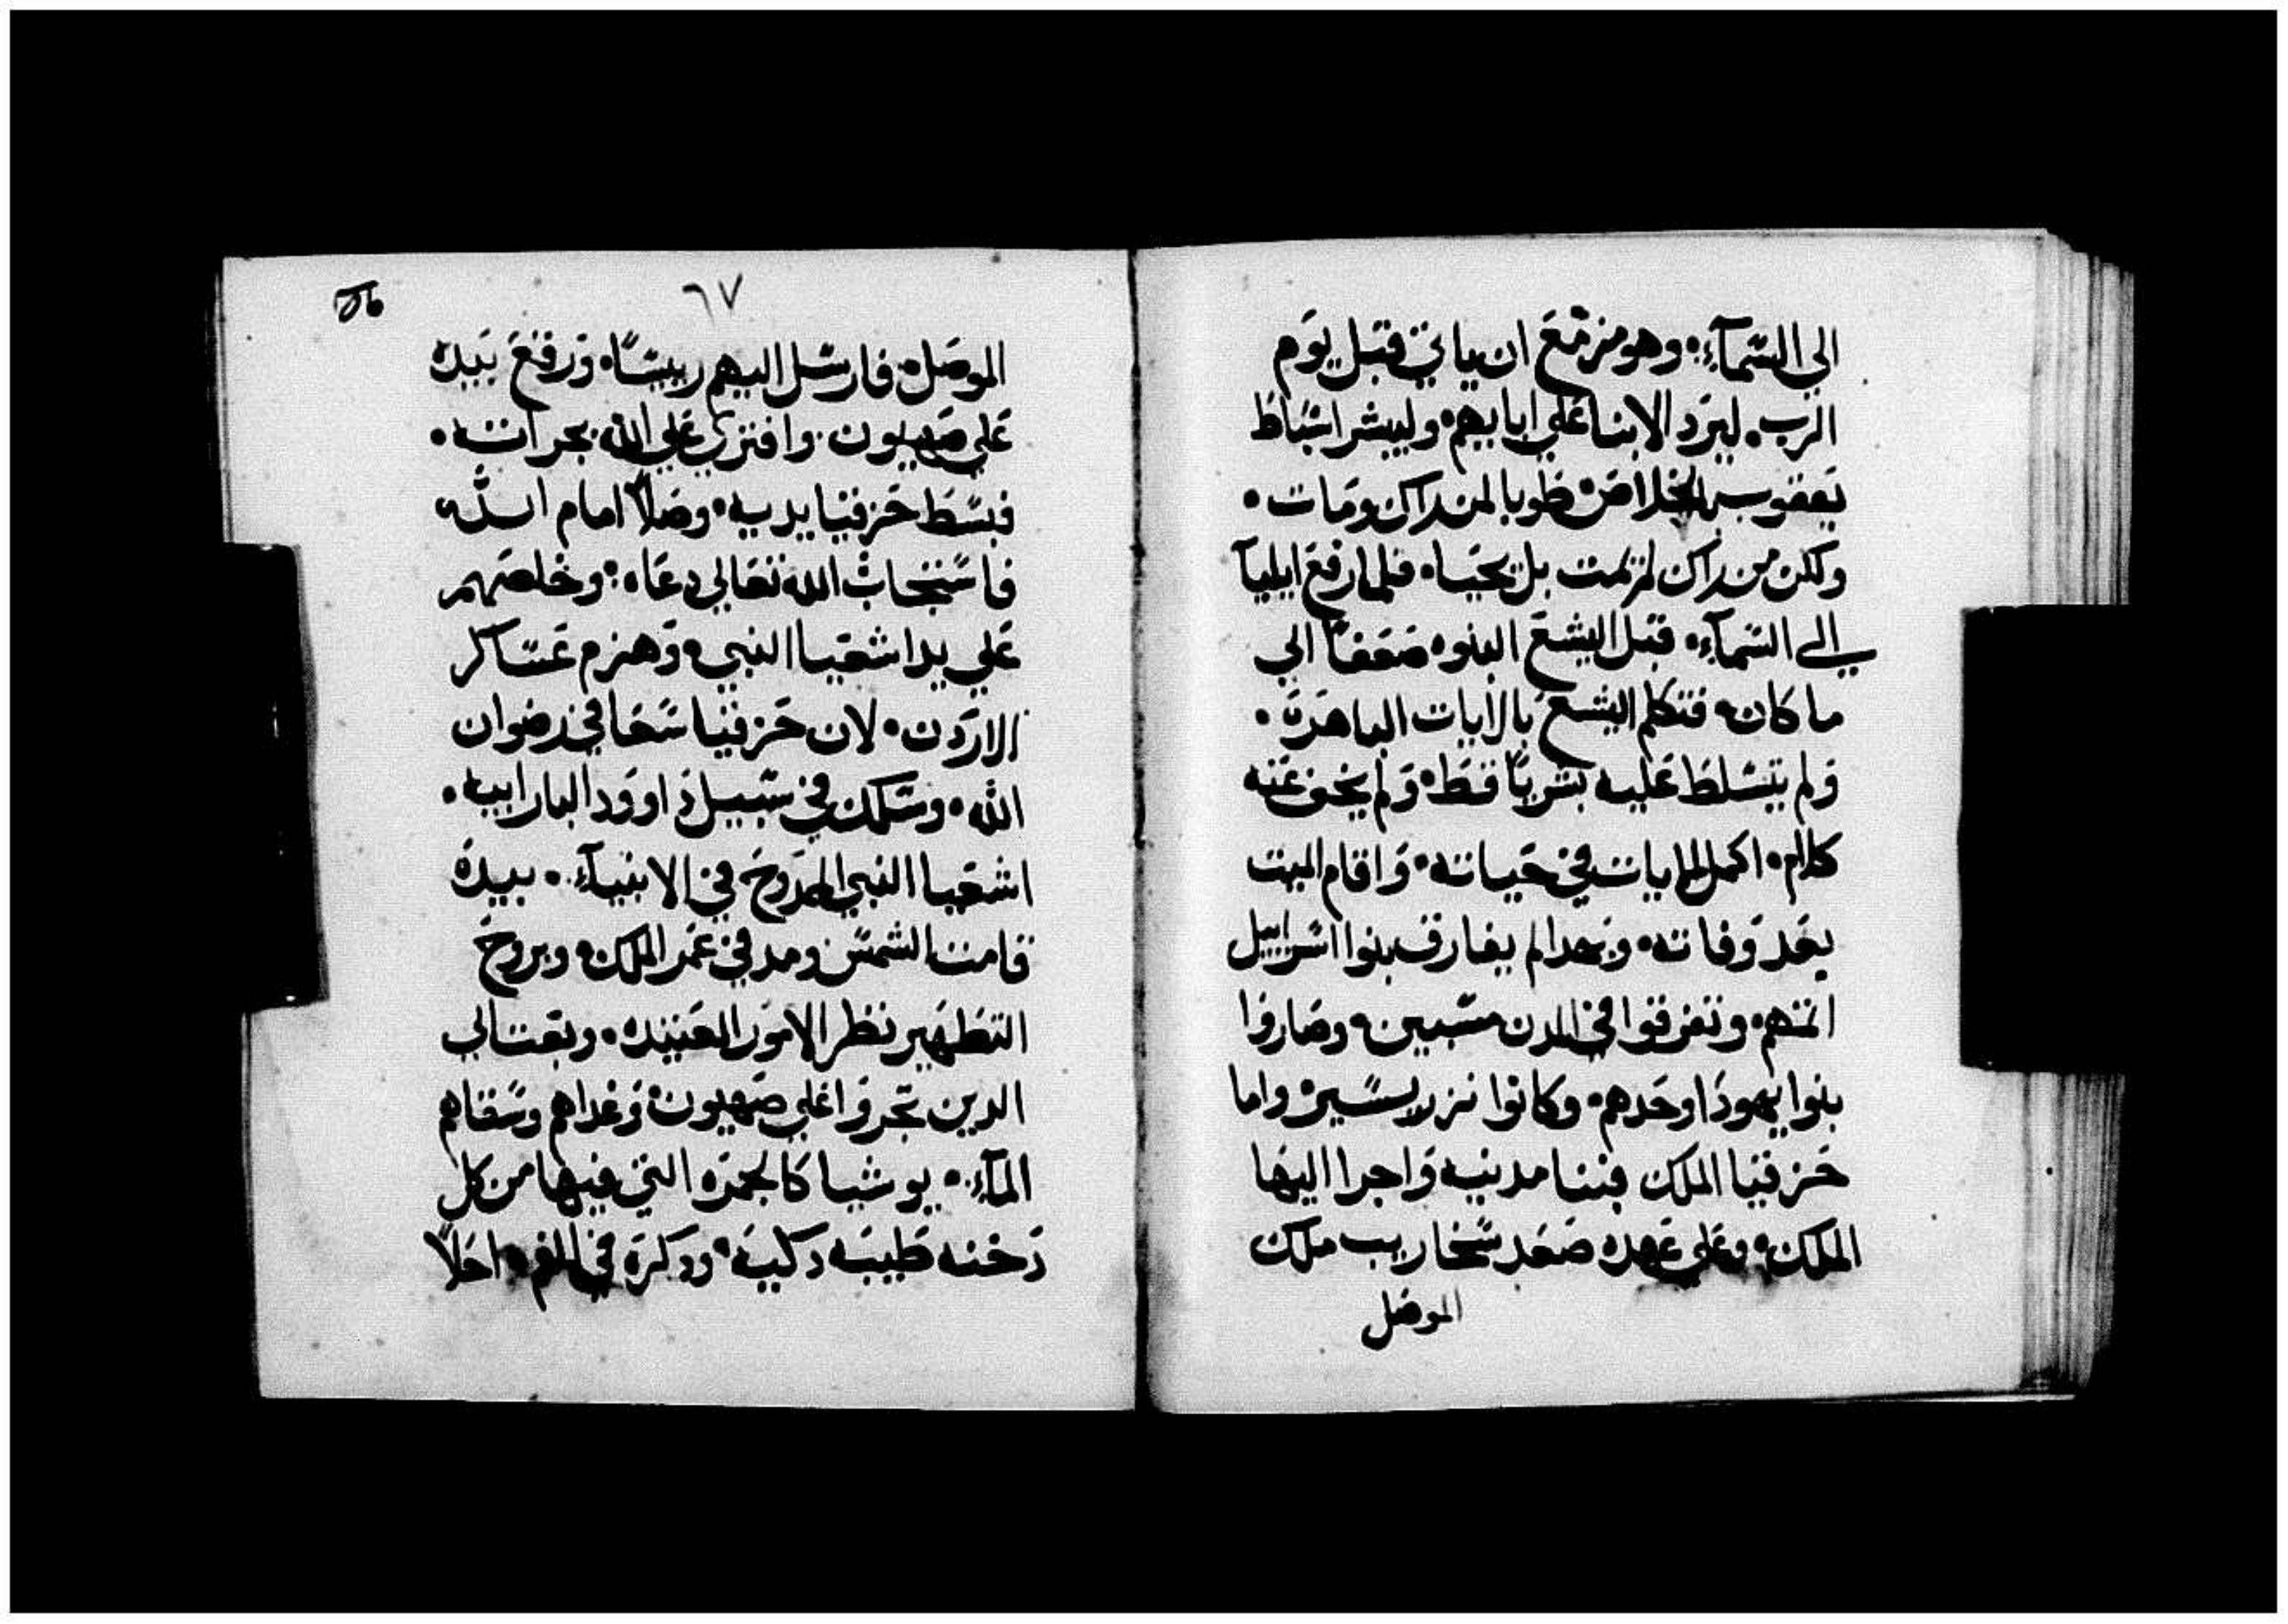 الي السمآء. وهو مزمع ان ياتي قبل يوم
الرب. ليرد الابنا علي ابايهم. وليبشر اسباط
يعقوب بالخلاص. طوبا لمن راك ومات.
ولكن من راك لم يمت بل يحيا. فلما رفع ايليا
الي السمآء. قبل اليشع البنوه ضعفا الي
ما كان. فتكلم اليشع بالايات الباهرة.
ولم يتسلط عليه بشريا قط. ولم يخف عنه
كلام. اكمل الايات في حياته. واقام الميت
بعد وفاته. وبهدا لم يفارق بنوا اسراييل
اثمهم. وتفرقوا في المدن مسبيين. وصاروا
بنوا يهودا وحدهم. وكانوا نزر يسير. واما
حزقيا الملك فبنا مدينه واجرا اليها
الملك. وعلي عهده صعد سخاريب ملك
الموصل
٦٧
الموصل. فارسل اليهم رييسا. ورفع بيده
علي صهيون. وافتري علي الله بجراته.
فبسط حزقيا يديه. وصلا امام الله.
فاستجاب الله تعالي دعاه. وخلصهم
علي يد اشعيا النبي. وهزم عساكر
الاردن. لان حزقيا سعا في رضوان
الله. وسلك في سبيل داوود البار ابيه.
اشعيا النبي الممدوح في الانبيآء. بيده
قامت الشمس ومد في عمر الملك. وبروح
التطهير نظر الامور العتيده. وبعت الي
الدين تجروا علي صهيون. وغداهم وسقاهم
المآء. يوشيا كالجمره التي فيها من كل
دخنه طيبه دكيه. ودكره في الفم. احلا